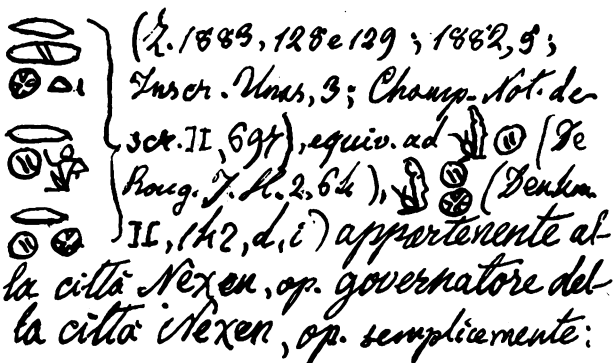 (Z. 1883, 128 e 129; 1882, 5;
Inscr. Unas, 3; Champ. Not. de-
scr. II, 697), equiv. ad (De
Roug. I. H. 2, 64), (Denkm.
II, 142, d, i) appartenente al-
la città Nexen, op. governatore del-
la città Nexen, op. semplicemente: